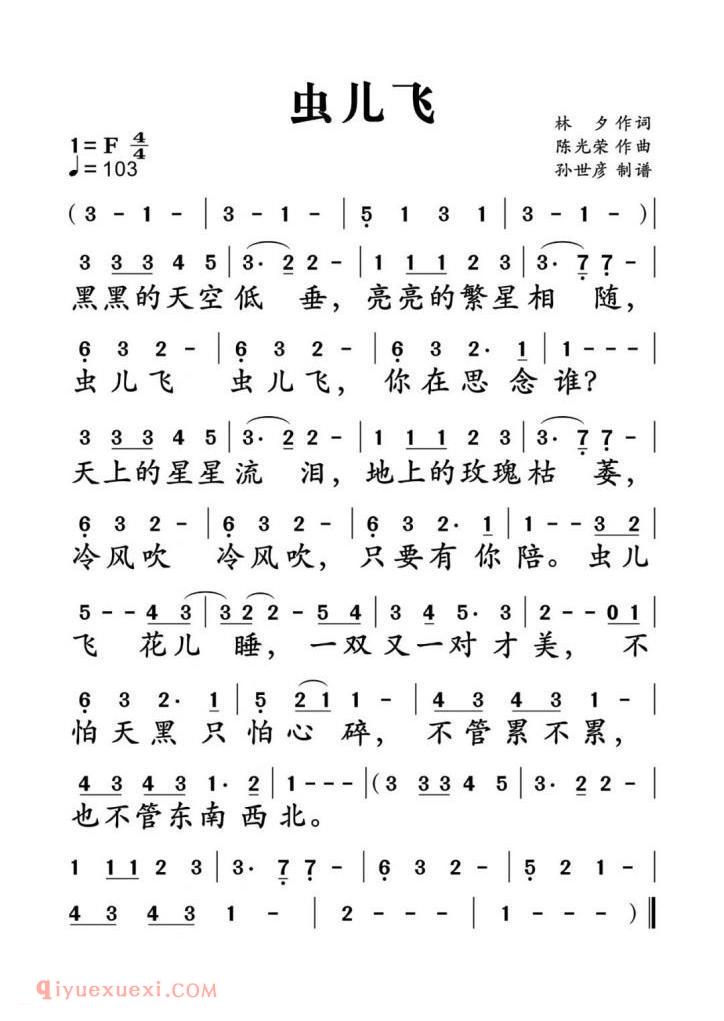 虫儿飞
林 夕 作词
1= F 4/4
陈光荣 作曲
♩= 103
孙世彦 制谱
( 3 - 1 - | 3 - 1 - | 5̣ 1 3 1 | 3 - 1 - ) |
3 3 3 4 5 | 3· 2 2 - | 1 1 1 2 3 | 3· 7̣ 7̣ - |
黑黑的天空低 垂，亮亮的繁星相 随，
6̣ 3 2 - | 6̣ 3 2 - | 6̣ 3 2· 1 | 1 - - - |
虫儿飞 虫儿飞，你在思念谁？
3 3 3 4 5 | 3· 2 2 - | 1 1 1 2 3 | 3· 7̣ 7̣ - |
天上的星星流 泪，地上的玫瑰枯 萎，
6̣ 3 2 - | 6̣ 3 2 - | 6̣ 3 2· 1 | 1 - - 3 2 |
冷风吹 冷风吹，只要有你陪。虫儿
5 - - 4 3 | 3 2 2 - 5 4 | 3 4 5· 3 | 2 - - 0 1 |
飞 花儿睡，一双又一对才美，不
6̣ 3 2· 1 | 5̣ 2 1 1 - | 4 3 4 3 1 - | 4 3 4 3 1 - |
怕天黑只怕心碎，不管累不累，
4 3 4 3 1· 2 | 1 - - - | ( 3 3 3 4 5 | 3· 2 2 - |
也不管东南西北。
1 1 1 2 3 | 3· 7̣ 7̣ - | 6̣ 3 2 - | 5̣ 2 - - |
4 3 4 3 1 - | 2 - - - | 1 - - - ) ‖
qiyuexuexi.com(七月学习网)